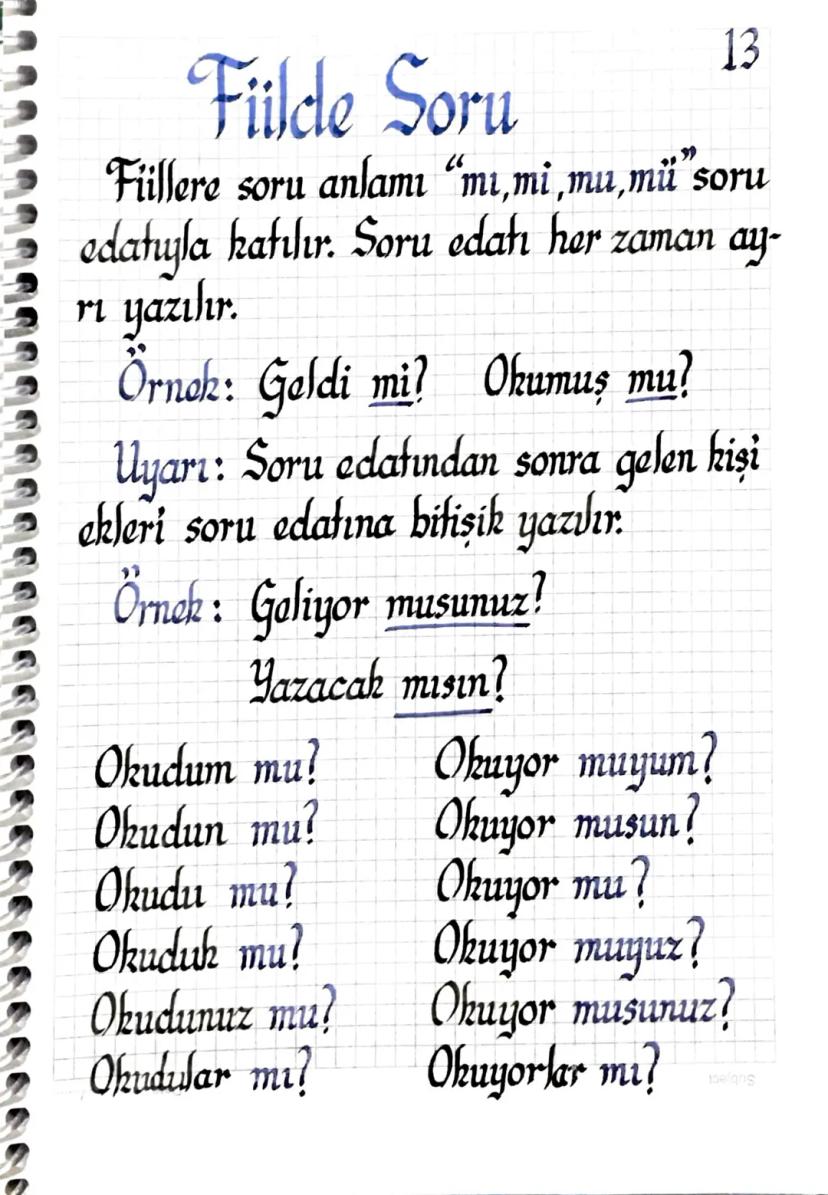 13
Fiilde Soru
Fiillere soru anlamı “mı, mi, mu, mü” soru
edatıyla katılır. Soru edatı her zaman ay-
rı yazılır.
Örnek: Geldi mi? Okumuş mu?
Uyarı: Soru edatından sonra gelen kişi
ekleri soru edatına bitişik yazılır.
Örnek: Geliyor musunuz?
Yazacak mısın?
Okudum mu? Okuyor muyum?
Okudun mu? Okuyor musun?
Okudu mu? Okuyor mu?
Okuduk mu? Okuyor muyuz?
Okudunuz mu? Okuyor musunuz?
Okudular mı? Okuyorlar mı?